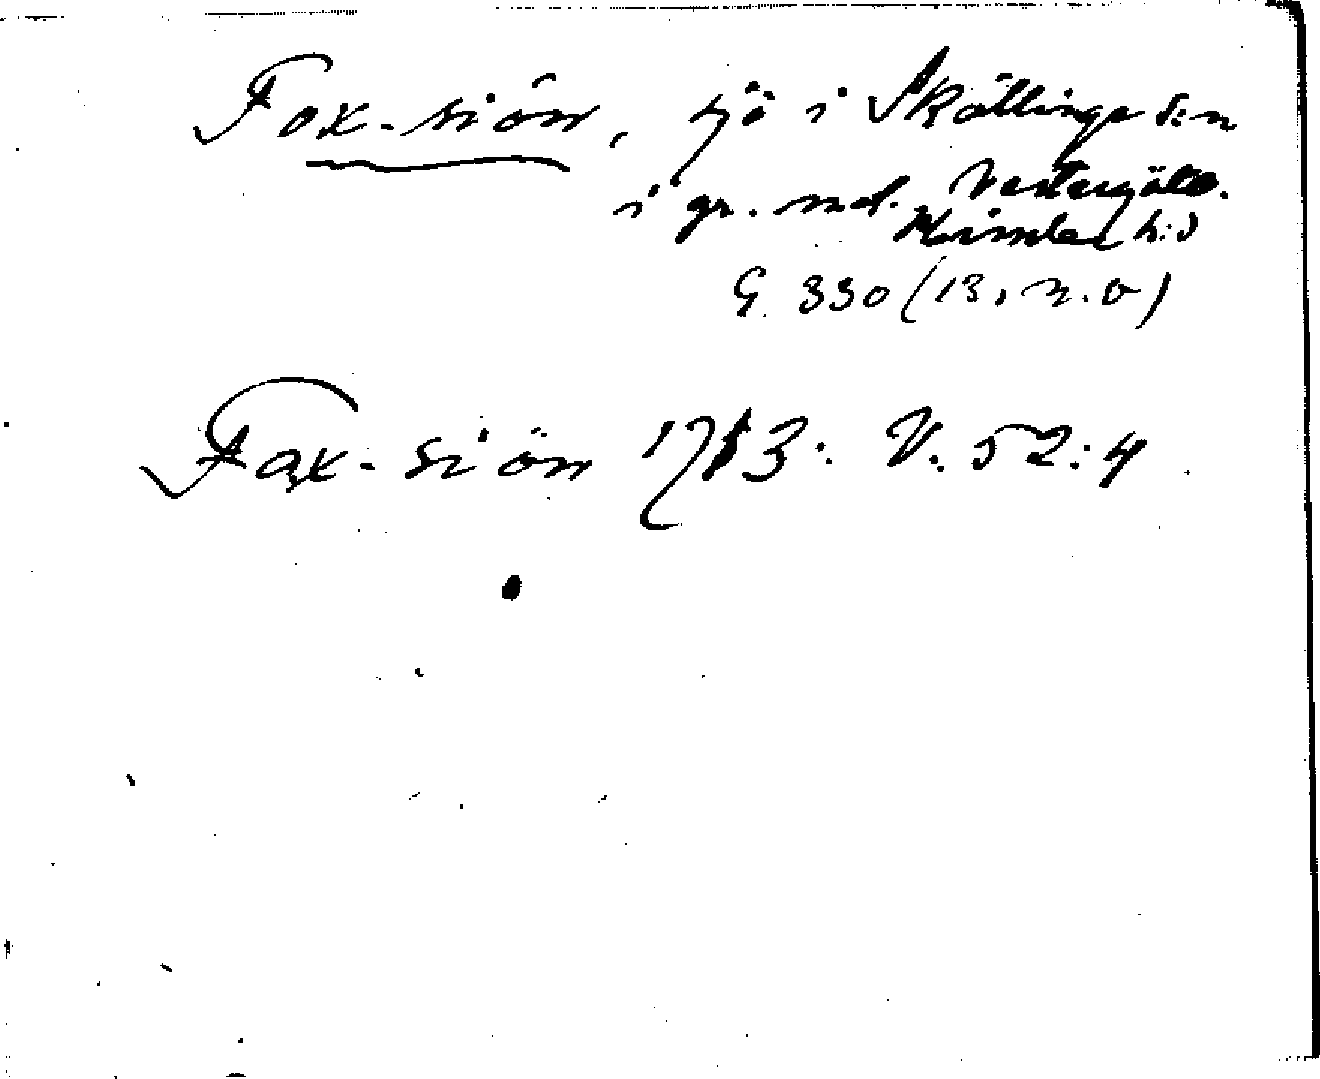 Fox-siön, sjö i Skällinge s:n
i gr. md. Vestergötl.
Himle h:d
G 330 (13, n.o)
Fax-siön 1713: V. 52:4